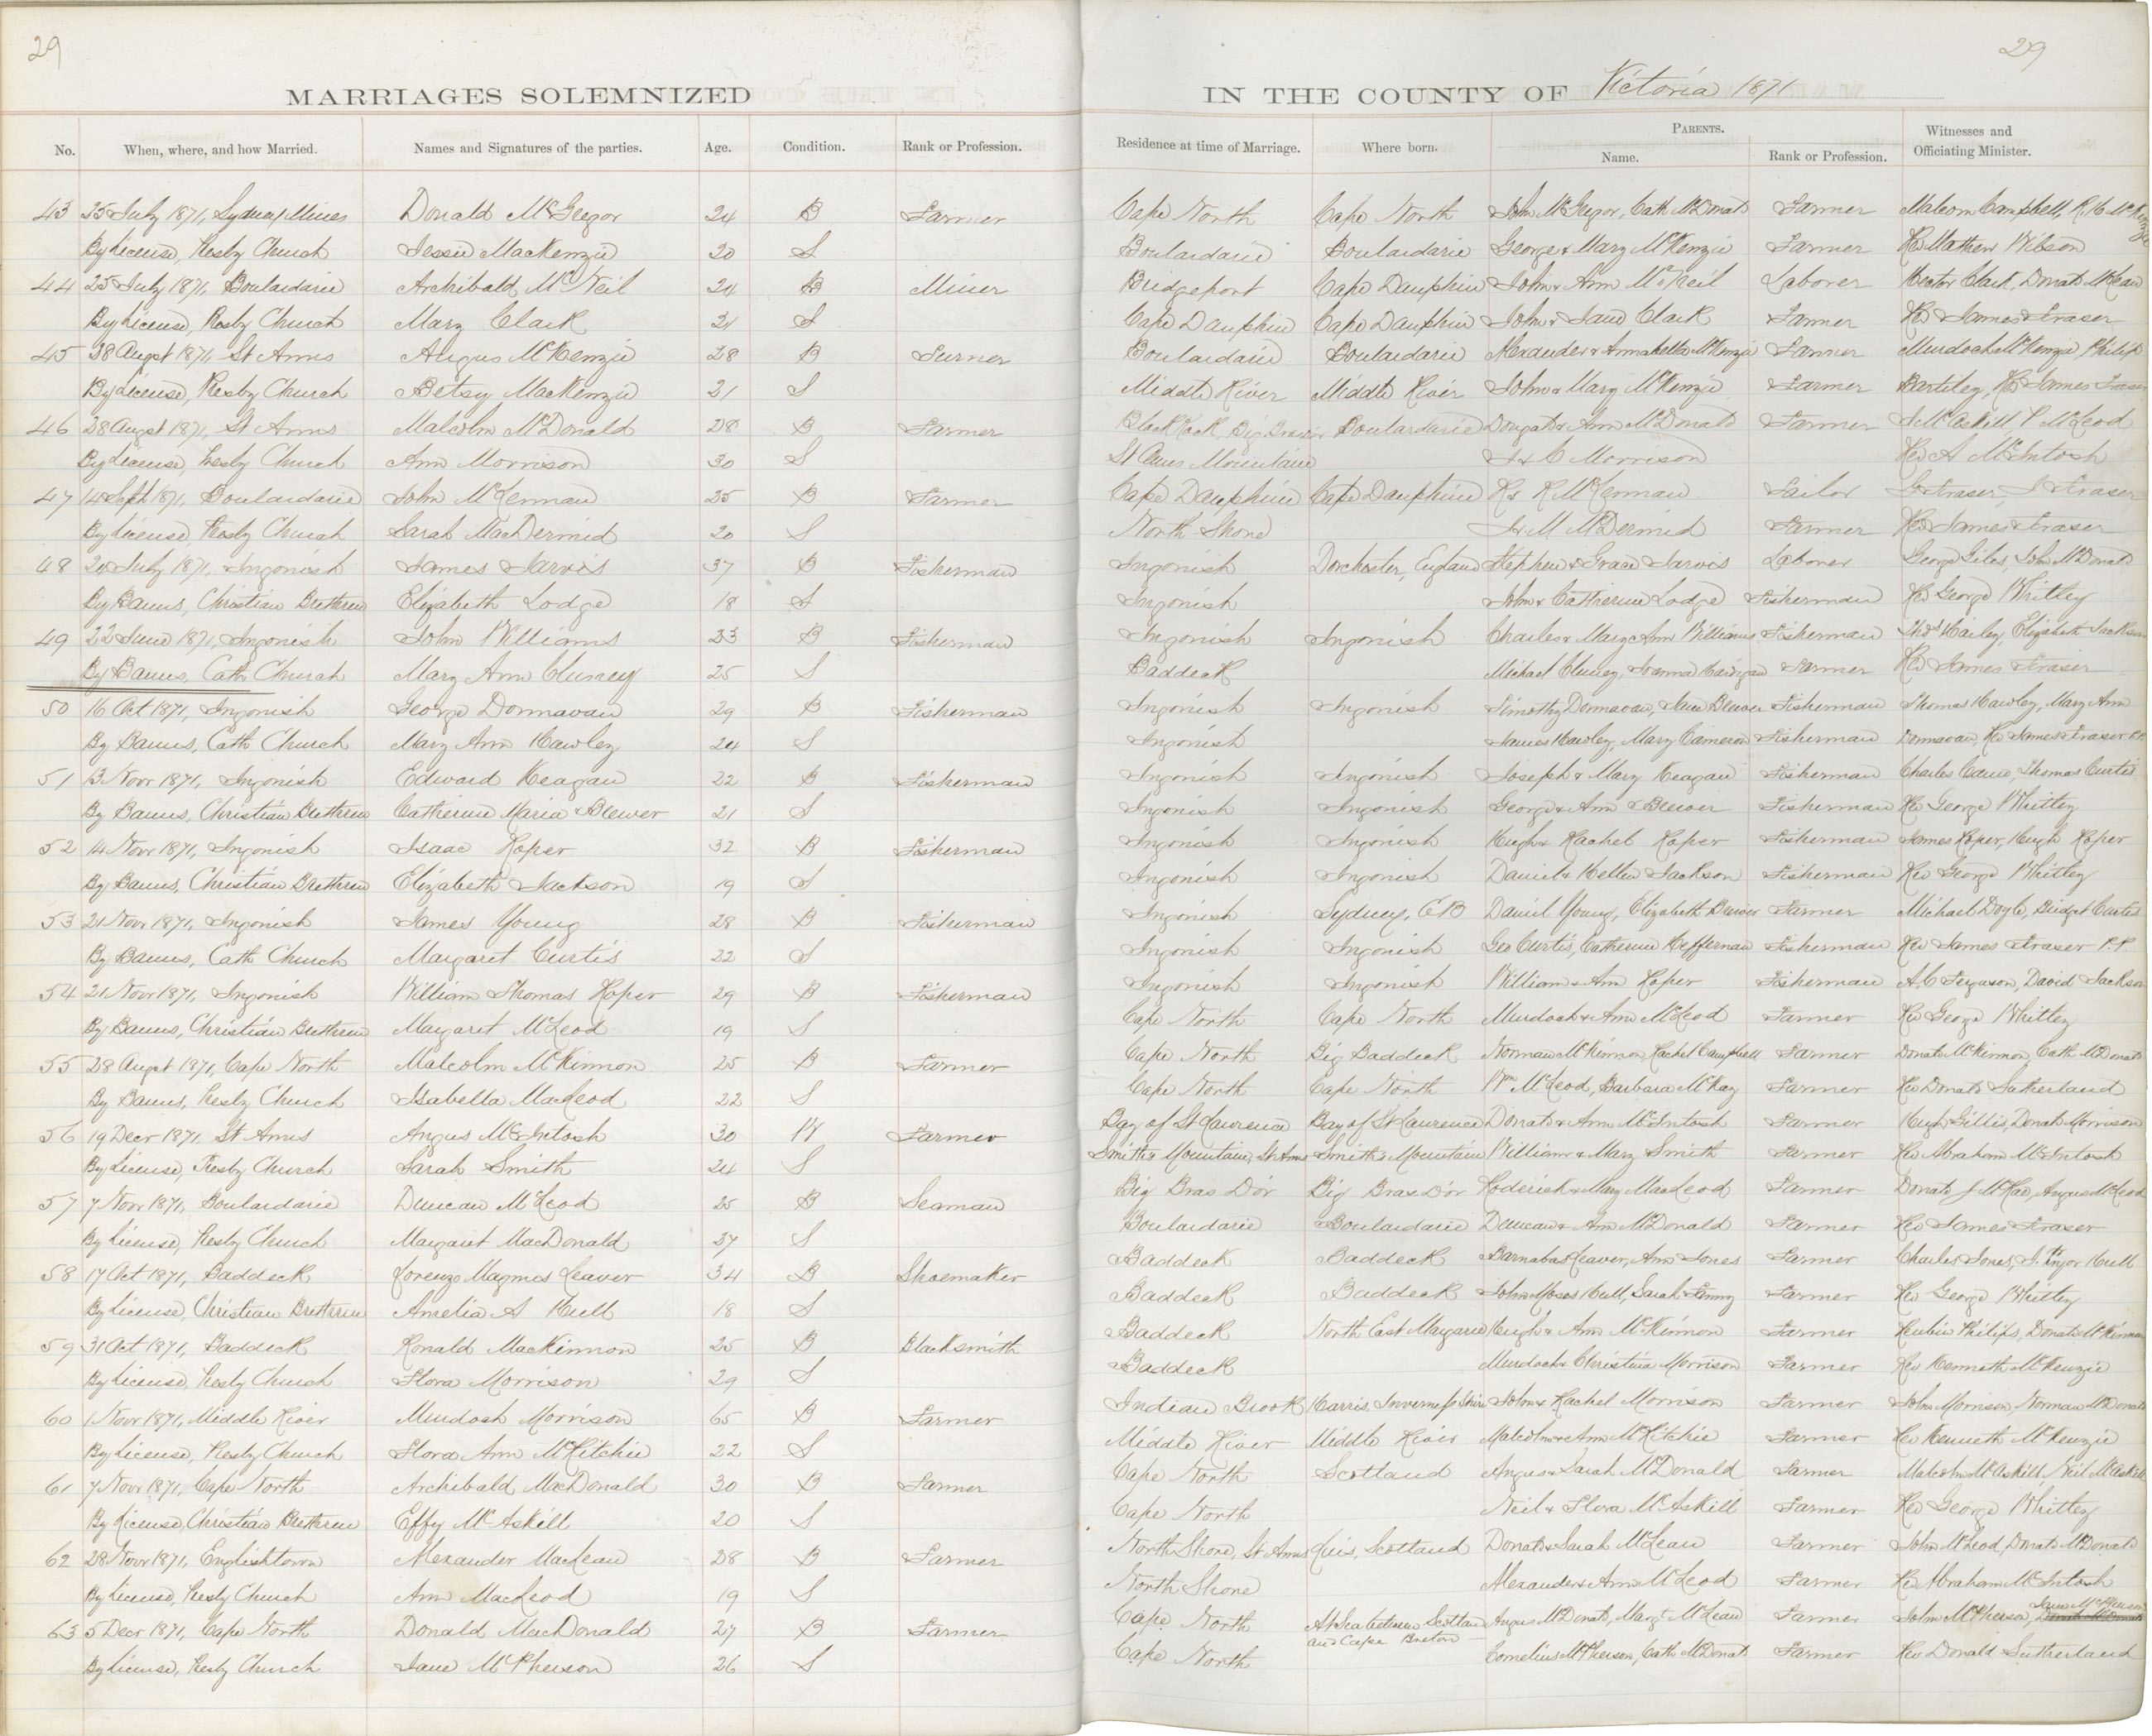 29
29
MARRIAGES SOLEMNIZED IN THE COUNTY OF Victoria 1871
No. When, where, and how Married. Names and Signatures of the parties. Age. Condition. Rank or Profession. Residence at time of Marriage. Where born. PARENTS. Name. Rank or Profession. Witnesses and Officiating Minister.
43 25 July 1871, Sydney Mines Donald McGregor 24 B Farmer Cape North Cape North John McGregor, Cath McDonald Farmer Malcom Campbell, R. C.
By License, Presby Church Jessie MacKenzie 20 S Boulardarie Boulardarie George & Mary McKenzie Farmer Rev Mathew Wilson
44 25 July 1871, Boulardarie Archibald McNeil 24 B Miner Bridgeport Cape Dauphin John & Ann McNeil Laborer Hector Clark, Donald McLean
By License, Presby Church Mary Clark 21 S Cape Dauphin Cape Dauphin John & Jane Clark Farmer Rev James Fraser
45 28 Augst 1871, St Anns Angus McKenzie 28 B Farmer Boulardarie Boulardarie Alexander & Annabella McKenzie Farmer Murdoch McKenzie Philip
By License, Presby Church Betsy MacKenzie 21 S Middle River Middle River John & Mary McKenzie Farmer Rev James Fraser
46 28 Augst 1871, St Anns Malcolm McDonald 28 B Farmer Black Rock, Big Brasdor Boulardarie Dougald & Ann McDonald Farmer J McAskill P McLeod
By License, Presby Church Ann Morrison 30 S St Anns Mountain J & C Morrison Rev A McIntosh
47 14 Sept 1871, Boulardarie John McLennan 25 B Farmer Cape Dauphin Cape Dauphin R & K McLennan Tailor G Fraser, J Fraser
By License, Presby Church Sarah MacDermid 20 S North Shore J & M McDermid Farmer Rev James Fraser
48 20 July 1871, Ingonish James Jarvis 37 B Fisherman Ingonish Dorchester, England Stephen & Grace Jarvis Laborer George Giles, John McDonald
By Banns, Christian Brethren Elizabeth Lodge 18 S Ingonish John & Catherine Lodge Fisherman Rev George Whitley
49 22 June 1871, Ingonish John Williams 23 B Fisherman Ingonish Ingonish Charles & Mary Ann Williams Fisherman Thos Hailey, Elizabeth Jackson
By Banns, Cath Church Mary Ann Clumey 25 S Baddeck Michael Clumey, Joanna Farmer Rev James Fraser
50 16 Oct 1871, Ingonish George Donnavan 29 B Fisherman Ingonish Ingonish Timothy Donnavan, Jane Brewer Fisherman Thomas Hawley, Mary Ann
By Banns, Cath Church Mary Ann Hawley 24 S Ingonish James Hawley, Mary Cameron Fisherman Donnavan, Rev James Fraser P.P.
51 13 Novr 1871, Ingonish Edward Keagan 22 B Fisherman Ingonish Ingonish Joseph & Mary Keagan Fisherman Charles Cann, Thomas Curtis
By Banns, Christian Brethren Catherine Maria Brewer 21 S Ingonish Ingonish George & Ann Brewer Fisherman Rev George Whitley
52 14 Novr 1871, Ingonish Isaac Roper 32 B Fisherman Ingonish Ingonish Hugh & Rachel Roper Fisherman James Roper, Hugh Roper
By Banns, Christian Brethren Elizabeth Jackson 19 S Ingonish Ingonish Daniel & Hellen Jackson Fisherman Rev George Whitley
53 21 Novr 1871, Ingonish James Young 28 B Fisherman Ingonish Sydney, CB Daniel Young, Elizabeth Brewer Farmer Michael Doyle, Bridget Curtis
By Banns, Cath Church Margaret Curtis 22 S Ingonish Ingonish Geo Curtis, Catherine Heffernan Fisherman Rev James Fraser P.P.
54 21 Novr 1871, Ingonish William Thomas Roper 29 B Fisherman Ingonish Ingonish William & Ann Roper Fisherman A. C Ferguson, David Jackson
By Banns, Christian Brethren Margaret McLeod 19 S Cape North Cape North Murdoch & Ann McLeod Farmer Rev George Whitley
55 28 Augst 1871, Cape North Malcolm McKinnon 25 B Farmer Cape North Big Baddeck Norman McKinnon, Rachel Campbell Farmer Donald McKinnon, Cath McDonald
By Banns, Presby Church Isabella MacLeod 22 S Cape North Cape North Wm McLeod, Barbara McKay Farmer Rev Donald Sutherland
56 19 Decr 1871, St Anns Angus McIntosh 30 W Farmer Bay of St Laurence Bay of St Laurence Donald & Ann McIntosh Farmer Hugh Gillis, Donald Morrison
By License, Presby Church Sarah Smith 24 S Smiths Mountain, St Anns Smiths Mountain William & Mary Smith Farmer Rev Abraham McIntosh
57 7 Novr 1871, Boulardarie Duncan McLeod 25 B Seaman Big Bras D'or Big Bras D'or Roderick & Mary MacLeod Farmer Donald J McRae, Angus McLeod
By License, Presby Church Margaret MacDonald 27 S Boulardarie Boulardarie Duncan & Ann McDonald Farmer Rev James Fraser
58 17 Oct 1871, Baddeck Lorenzo Magmos Leaver 34 B Shoemaker Baddeck Baddeck Barnabas Leaver, Ann Jones Farmer Charles Jones, Hull
By License, Christian Brethren Amelia A Hull 18 S Baddeck Baddeck John Moses Hull, Sarah Farmer Rev George Whitley
59 31 Oct 1871, Baddeck Ronald MacKinnon 25 B Blacksmith Baddeck North East Margarie Hugh & Ann McKinnon Farmer Reubin Philips, Donald McKinnon
By License, Presby Church Flora Morrison 29 S Baddeck Murdoch & Christina Morrison Farmer Rev Kenneth McKenzie
60 1 Novr 1871, Middle River Murdoch Morrison 65 B Farmer Indian Brook Harris, Inverness Shire John & Rachel Morrison Farmer John Morrison, Norman McDonald
By License, Presby Church Flora Ann McRitchie 22 S Middle River Middle River Malcolm & Ann McRitchie Farmer Rev Kenneth McKenzie
61 7 Novr 1871, Cape North Archibald MacDonald 30 B Farmer Cape North Scotland Angus & Sarah McDonald Farmer Malcolm McAskill, Neil McAskill
By License, Christian Brethren Effy McAskill 20 S Cape North Neil & Flora McAskill Farmer Rev George Whitley
62 28 Novr 1871, Englishtown Alexander MacLean 28 B Farmer North Shore, St Anns Scotland Donald & Sarah McLean Farmer John McLeod, Donald McDonald
By License, Presby Church Ann MacLeod 19 S North Shore Alexander & Ann McLeod Farmer Rev Abraham McIntosh
63 5 Decr 1871, Cape North Donald MacDonald 27 B Farmer Cape North At Sea between Scotland and Cape Breton Angus McDonald, Margt McLean Farmer John McPherson, Jane McPherson
By License, Presby Church Jane McPherson 26 S Cape North Cornelius McPherson, Cath McDonald Farmer Rev Donald Sutherland